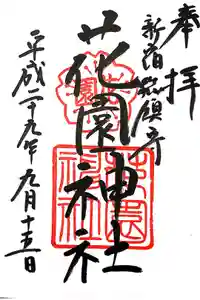 奉拝
新宿総鎮守
花園神社
平成二十九年九月十三日
花園神社